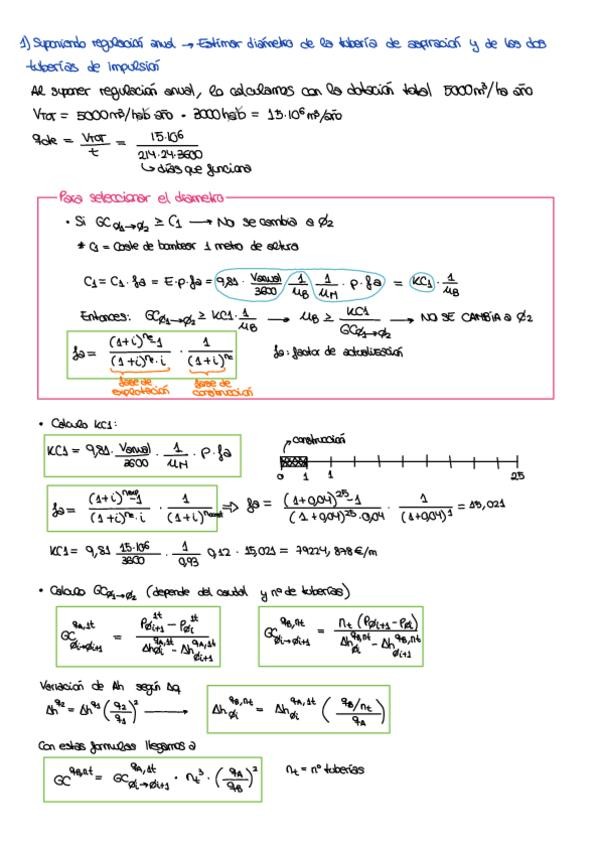 1) Suponiendo regulación anual → Estimar diámetro de la tubería de aspiración y de las dos
tuberías de impulsión
Al suponer regulación anual, lo calculamos con la dotación total 5000m³/ha año
VTOT = 5000m³/hab año · 3000hab = 15·10⁶m³/año
qbte = VTOT / t = 15·10⁶ / 214·24·3600
↳ días que funciona
Para seleccionar el diámetro
• Si GCø1→ø2 ≥ C1 → NO se cambia a ø2
* C1 = Coste de bombear 1 metro de altura
C1 = C1 · fa = E·p·fa = 9,81 · Vanual/3600 · 1/μB · 1/μM · p · fa = KC1 · 1/μB
Entonces: GCø1→ø2 ≥ KC1 · 1/μB → μB ≥ KC1 / GCø1→ø2 → NO SE CAMBIA a ø2
fa = (1+i)^ne - 1 / (1+i)^ne · i · 1 / (1+i)^nc fa: factor de actualización
fase de explotación fase de construcción
• Calculo KC1:
KC1 = 9,81 · Vanual/3600 · 1/μM · p · fa
construcción
0 1 1 25
fa = (1+i)^nexp - 1 / (1+i)^ne · i · 1 / (1+i)^nconst ⇒ fa = (1+0,04)^25 - 1 / (1+0,04)^25 · 0,04 · 1 / (1+0,04)^1 = 15,021
KC1 = 9,81 15·10⁶/3600 · 1/0,93 0,12 · 15,021 = 79224,878€/m
• Calculo GCø1→ø2 (depende del caudal y nº de tuberías)
GCøi→øi+1^qA,1t = Pøi+1^1t - Pøi^1t / Δhøi^qA,1t - Δhøi+1^qA,1t GCøi→øi+1^qB,nt = nt (Pøi+1 - Pøi) / Δhøi^qB,nt - Δhøi+1^qB,nt
Variación de Δh según Δq
Δh^q2 = Δh^q1 (q2/q1)² → Δhøi^qB,nt = Δhøi^qA,1t (qB/nt / qA)²
Con estas formulas llegamos a
GC^qB,nt = GCøi→øi+1^qA,1t · nt³ · (qA/qB)² nt = nº tuberías